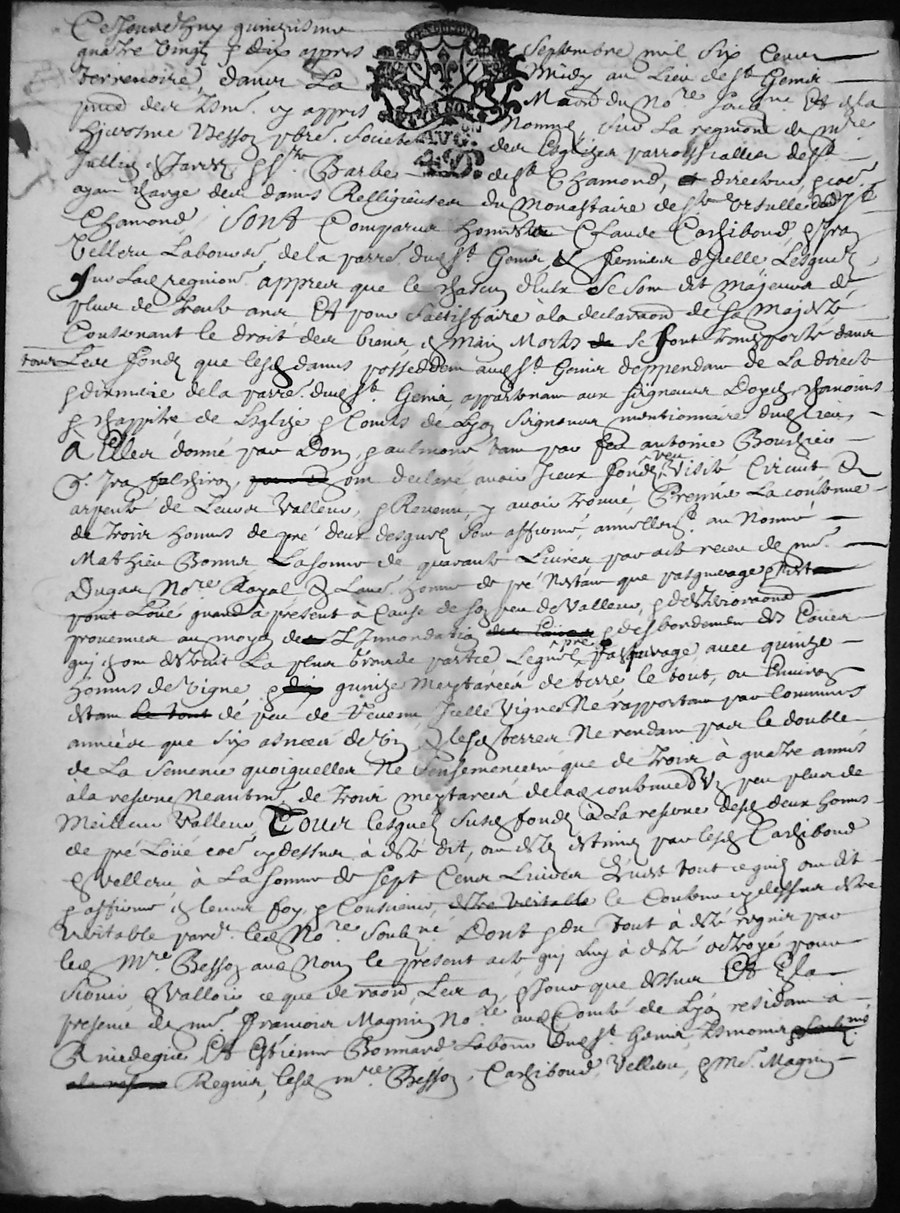 Cejourdhuy quinziesme Septembre mil six Cens
quatre vingtz & dix appres Midy au Lieu de St Genis
terrenoire, dans La Maison du Nore Soubne Et en la
pnce des tesm. cy appres Nommé, sur La requision de mre
hierosme Besson pbre Societe des Eglizes parroissialles de St
Jullien en Jarrez & Ste Barbe de St Chamond, directeur, & coe
ayant charge des dames Relligieuses du Monastaire de Ste Ursulle dudt St
Chamond, Sont Comparus honnestes Claude Cachiboud & fra
Velleru Laboureurs de la parre dud St Genis & fermier d'icelle Lesquels
sur Lad requision appres que le chascun d'eux Se Sont dit majeurs de
plus de trente ans Et pour Sattisfaire à la declaraon de Sa Majesté
Contenant le droit des biens en Main Morte Se Sont transportés dans
tous Les fonds que lesd dames possedden aud St Genis deppendans de La directe
& dixmerie de la parre dud St Genis, appartenant aux Seigneurs Doyen chanoines
& chappitre de L'Eglize & Comtes de Lyon Seigneurs mentionnaire dud lieu,
A Elles donné par Don, & aulmone tant par feu antoine Bouchier
& Jean falchiron, ont declaré avoir Iceux fonds veu Visité Circuit &
arpenté de Leurs Valleur, & Revenu, y avoir trouvé, Premier La contenue
de trois hommes de pré deux desquels Son affermé, annuellemt au Nommé
Mathieu Bonnes La somme de quarante Livres par acte receu de me
Dugas Nore Royal & L'aue homme de pré N'estan que pasquerage & n'est
point Loué quand à present à Cause de son peu de Valleur, & deterioraon
provenues au moyen de L'Innondation & desbordement des Eaues
qui en on destruit La plus grande partie Lequel pré pasquerage avec quinze
hommes de vigne & quinze Meytarees de terre le tout, ou Environ
estan de peu de revenu Icelle Vignes Ne rapportant par Communes
années que six asnees de vin & lesd terres Ne rendant pas le double
de La Semence quoiquelles Ne S'ensemencent que de trois à quatre années
a la reserve Neantms de trois meytarees de lad contenue Un peu plus de
Meilleure Valleur, Tous lesquels Susd fonds à La reserve desd deux hommes
de pré Loüé coe cy dessus à esté dit, on esté estimés par lesd Cachiboud
& Velleru, à La Somme de Sept Cens Livres Qu'est tout ce quils on dit
& affirmé en leurs foy, & Conscience, le Contenu cy dessus estre
Veritable pard led Nore Soubne Dont & du tout à esté requis par
led Mre Besson aud Nom le present acte qui Luy à esté octroyé pour
Servir & Valloir ce que de raon, Les an & Jour que dessus Et En la
presence de me francois Magnin Nore aud Comté de Lyon residant à
Rivedegier Et Estienne Bonnard Labour dud St Genis tesmoins
Requis, lesd mre Besson, Cachiboud, Velleru, & Me Magnin